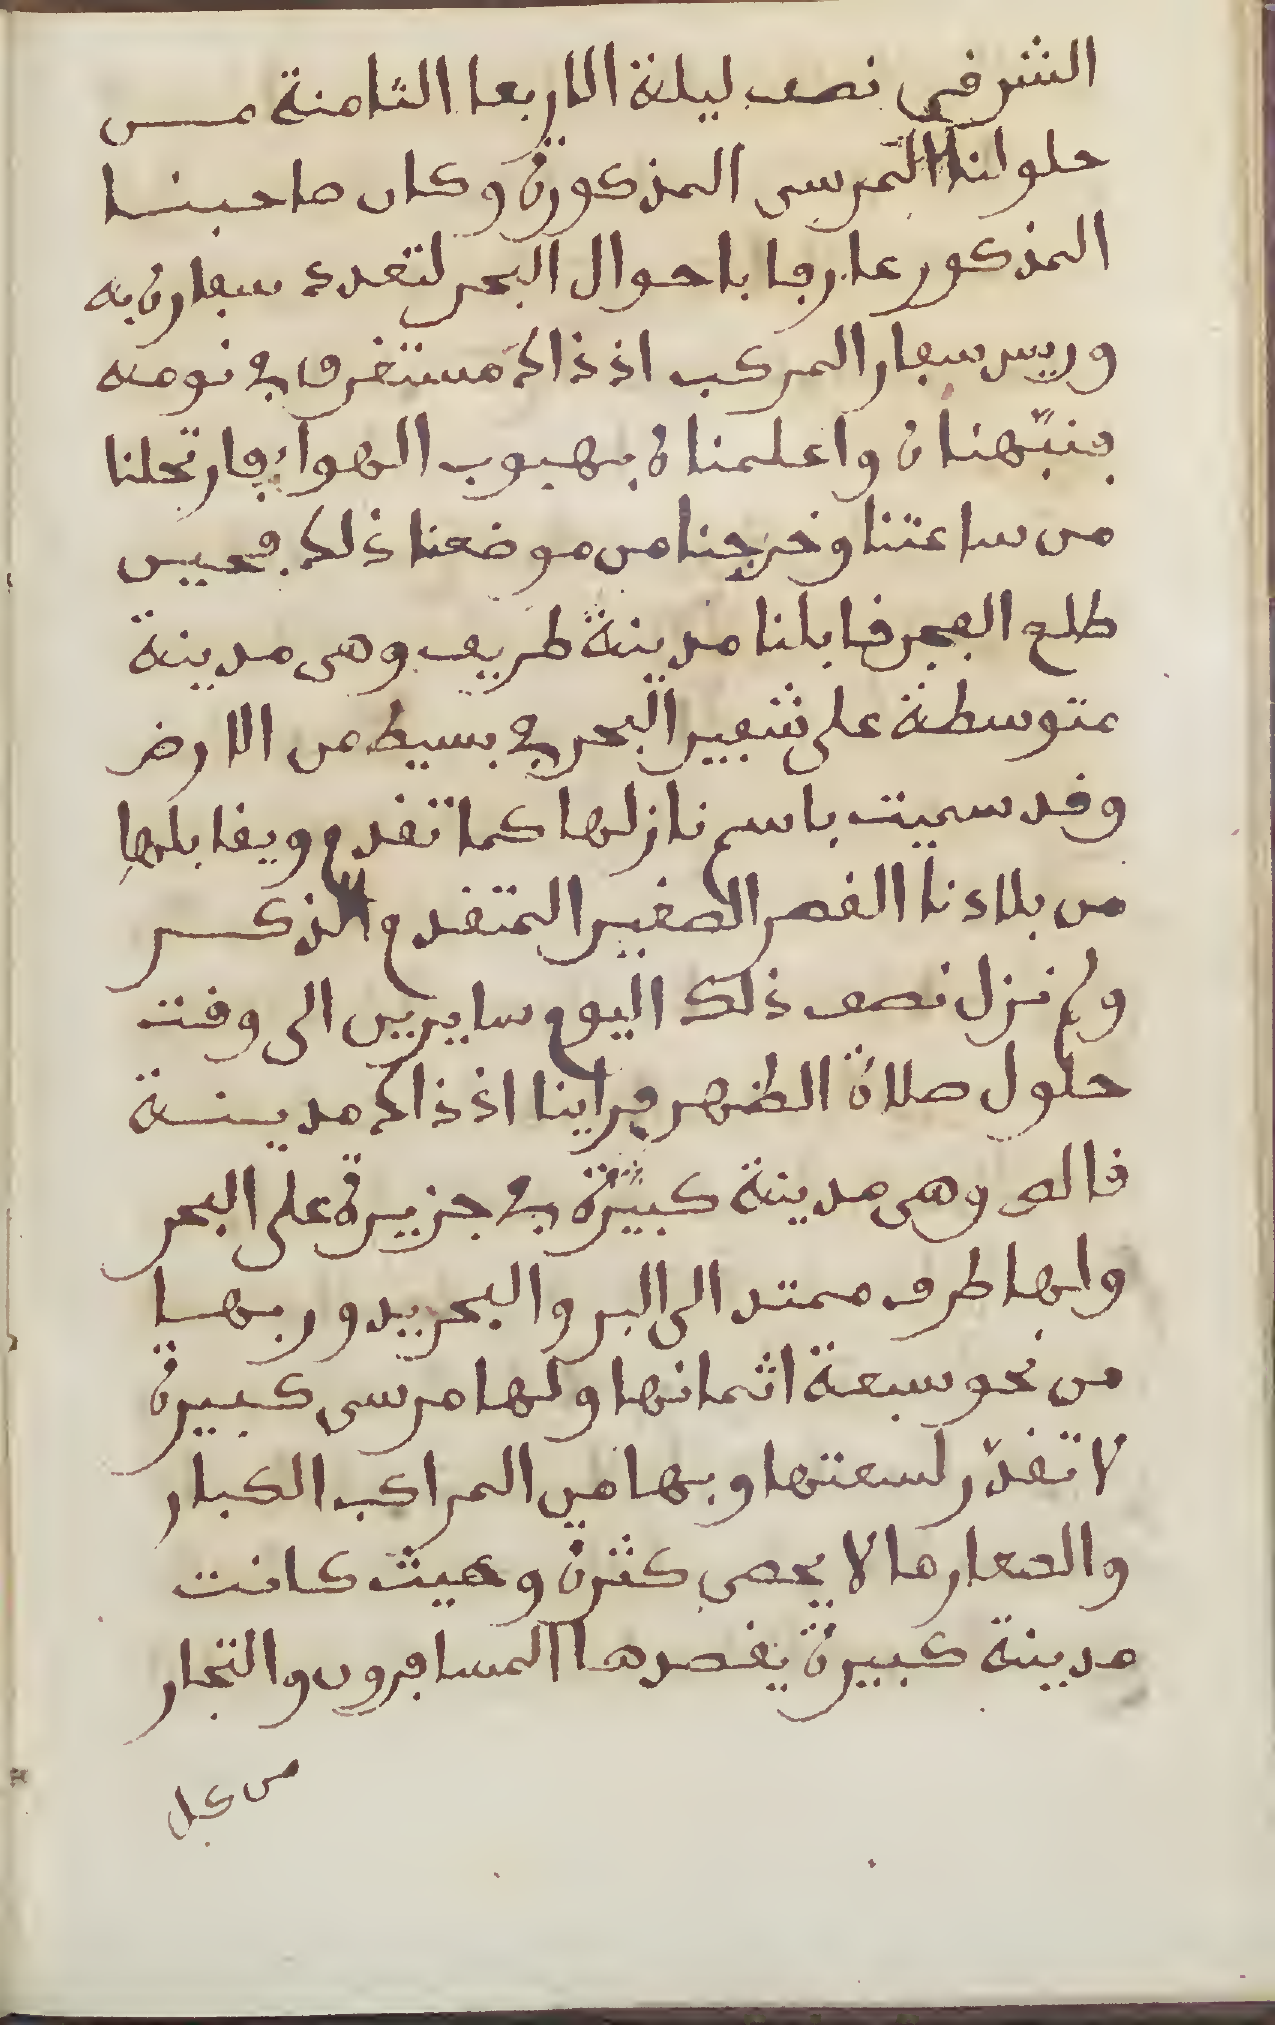 الشرقي نصف ليلة الاربعا الثامنة من
حلولنا المرسى المذكورة وكان صاحبنا
المذكور عارفا باحوال البحر لتعدد سفاره به
وريس سفار المركب اذ ذاك مستغرق في نومه
فنبّهناه واعلمناه بهبوب الهواء فارتحلنا
من ساعتنا وخرجنا من موضعنا ذلك فحين
طلع الفجر قابلنا مدينة طريف وهى مدينة
متوسطة على شفير البحر في بسيط من الارض
وقد سميت باسم نازلها كما تقدم ويقابلها
من بلادنا القصر الصغير المتقدم الذكر
ولم نزل نصف ذلك اليوم سايرين الى وقت
حلول صلاة الظهر فراينا اذ ذاك مدينة
قالص وهى مدينة كبيرة في جزيرة على البحر
ولها طرف ممتد الى البر والبحر يدور بها
من نحو سبعة اثمانها ولها مرسى كبيرة
لا تقدّر لسعتها وبها من المراكب الكبار
والصغار ما لا يحصى كثرة وحيث كانت
مدينة كبيرة يقصدها المسافرون والتجار
من كل